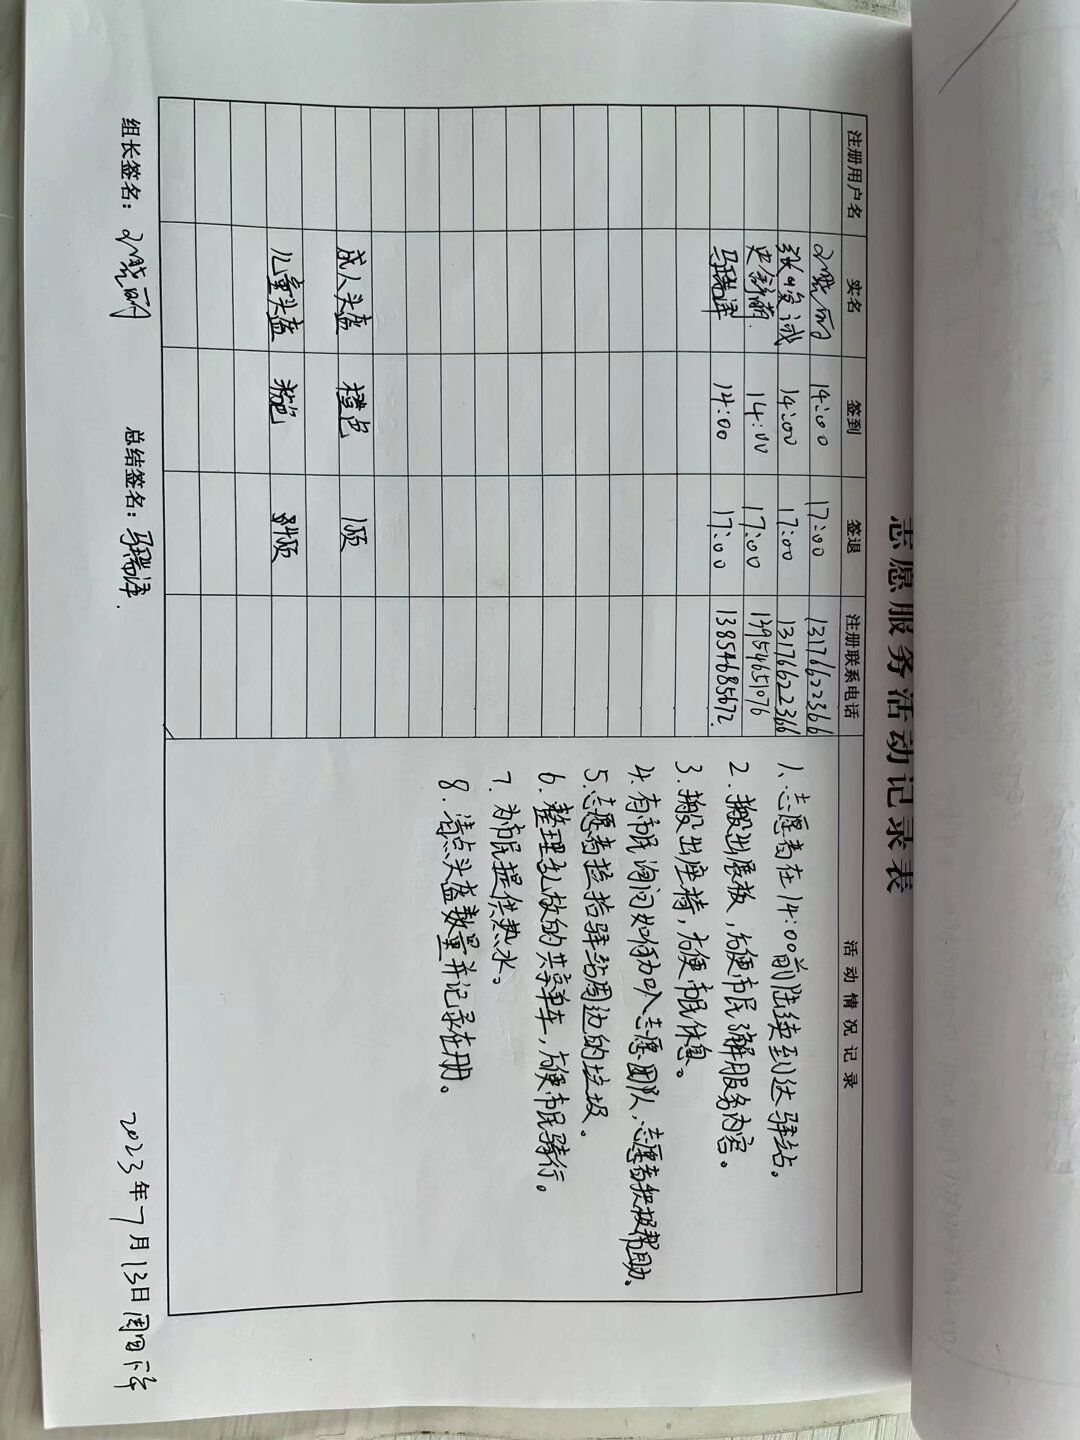 志愿服务活动记录表
注册用户名 实名 签到 签退 注册联系电话 活动情况记录
14:00 17:00 13176622366
14:00 17:00 13176622366
史余萌 14:00 17:00 13954651076
马瑞泽 14:00 17:00 13854685672
1、志愿者在14:00前陆续到达驿站。
2、搬出展板，方便市民了解服务内容。
3、搬出座椅，方便市民休息。
4、有市民询问如何加入志愿团队，志愿者积极帮助。
5、志愿者捡拾驿站周边的垃圾。
6、整理乱放的共享单车，方便市民骑行。
7、为市民提供热水。
8、清点头盔数量并记录在册。
成人头盔 橙色 1顶
儿童头盔 粉色
组长签名： 总结签名：马瑞泽
2023年7月13日周四下午